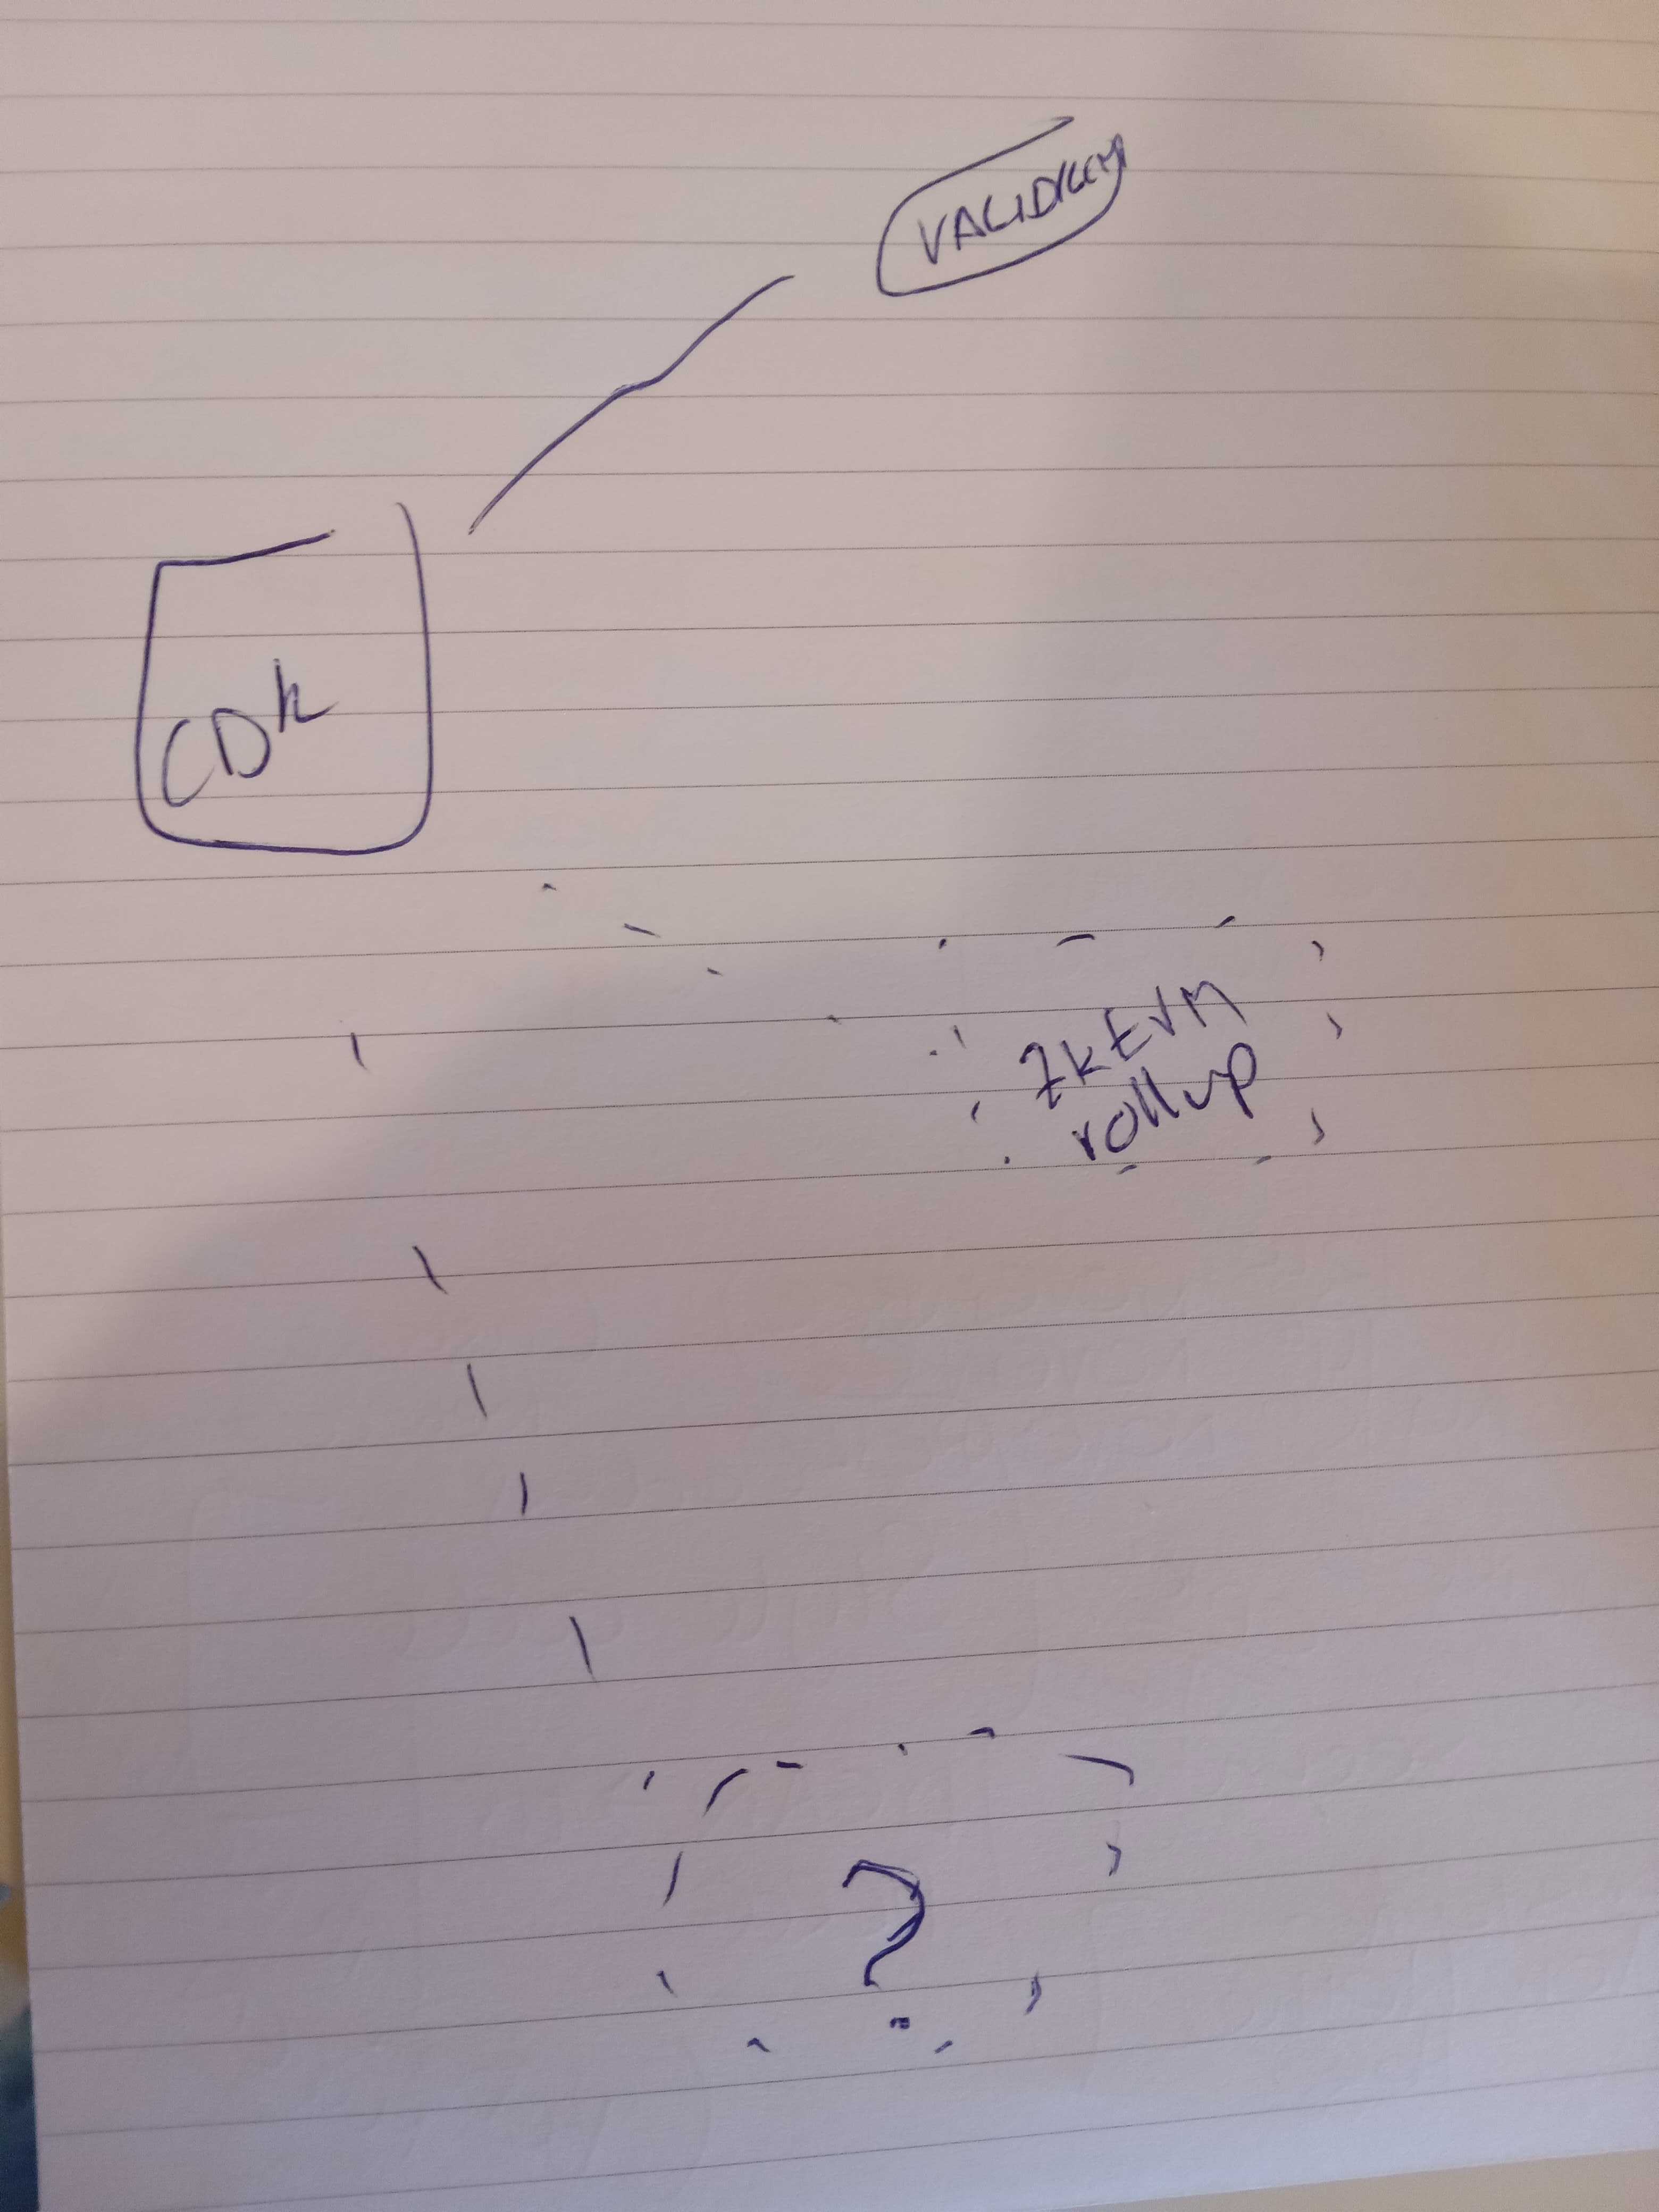 VALIDIUM
CDK
zkEVM
rollup
?